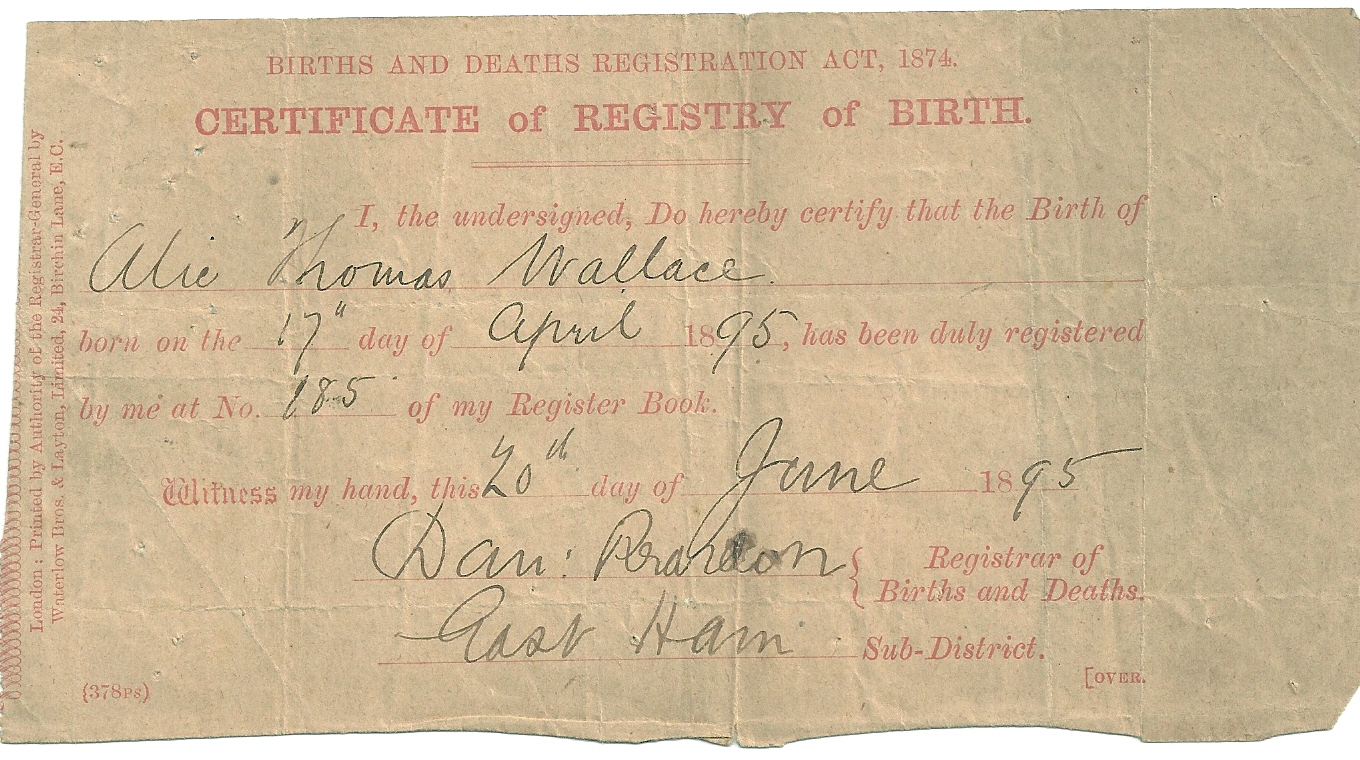 BIRTHS AND DEATHS REGISTRATION ACT, 1874.
CERTIFICATE of REGISTRY of BIRTH.
I, the undersigned, Do hereby certify that the Birth of
Alic Thomas Wallace.
born on the 17" day of April 1895, has been duly registered
by me at No. 185 of my Register Book.
Witness my hand, this 20th day of June 1895
Dan: Reardon { Registrar of
Births and Deaths.
East Ham Sub-District.
[OVER.
(378PS)
London: Printed by Authority of the Registrar-General by
Waterlow Bros. & Layton, Limited, 24, Birchin Lane, E.C.